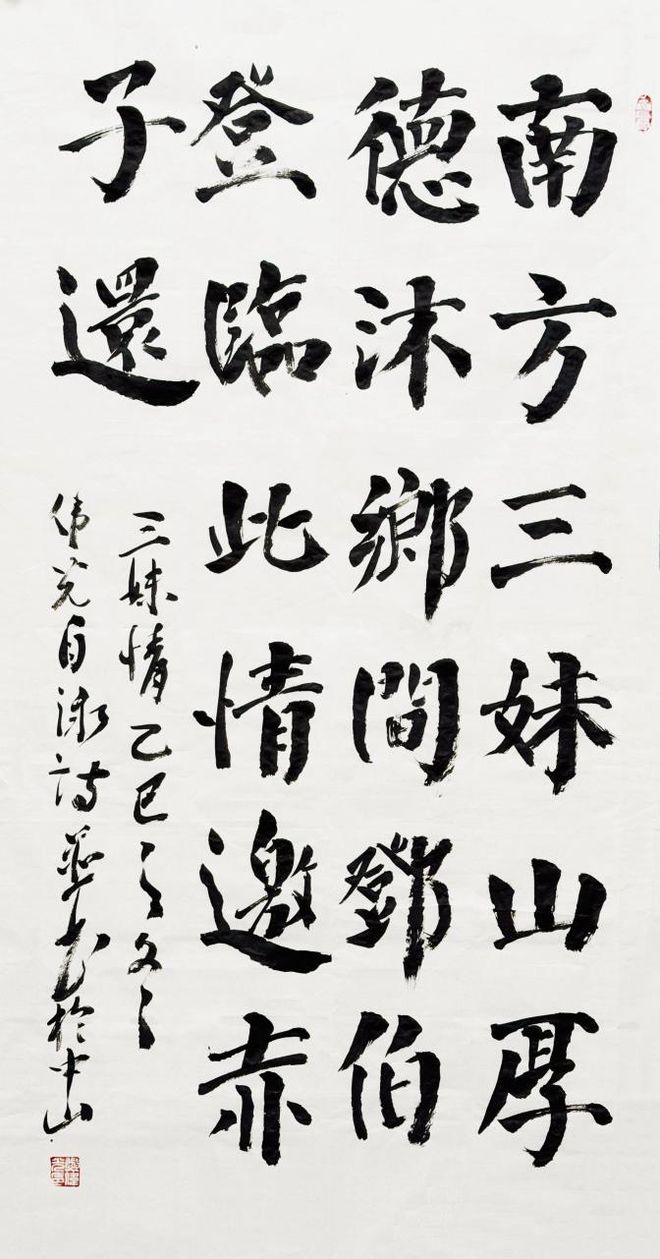 南方三妹山厚
德沐鄉間鄧伯
登臨此情邀赤
子還
三妹情乙巳之文之
伟光自泳詩並书於中山